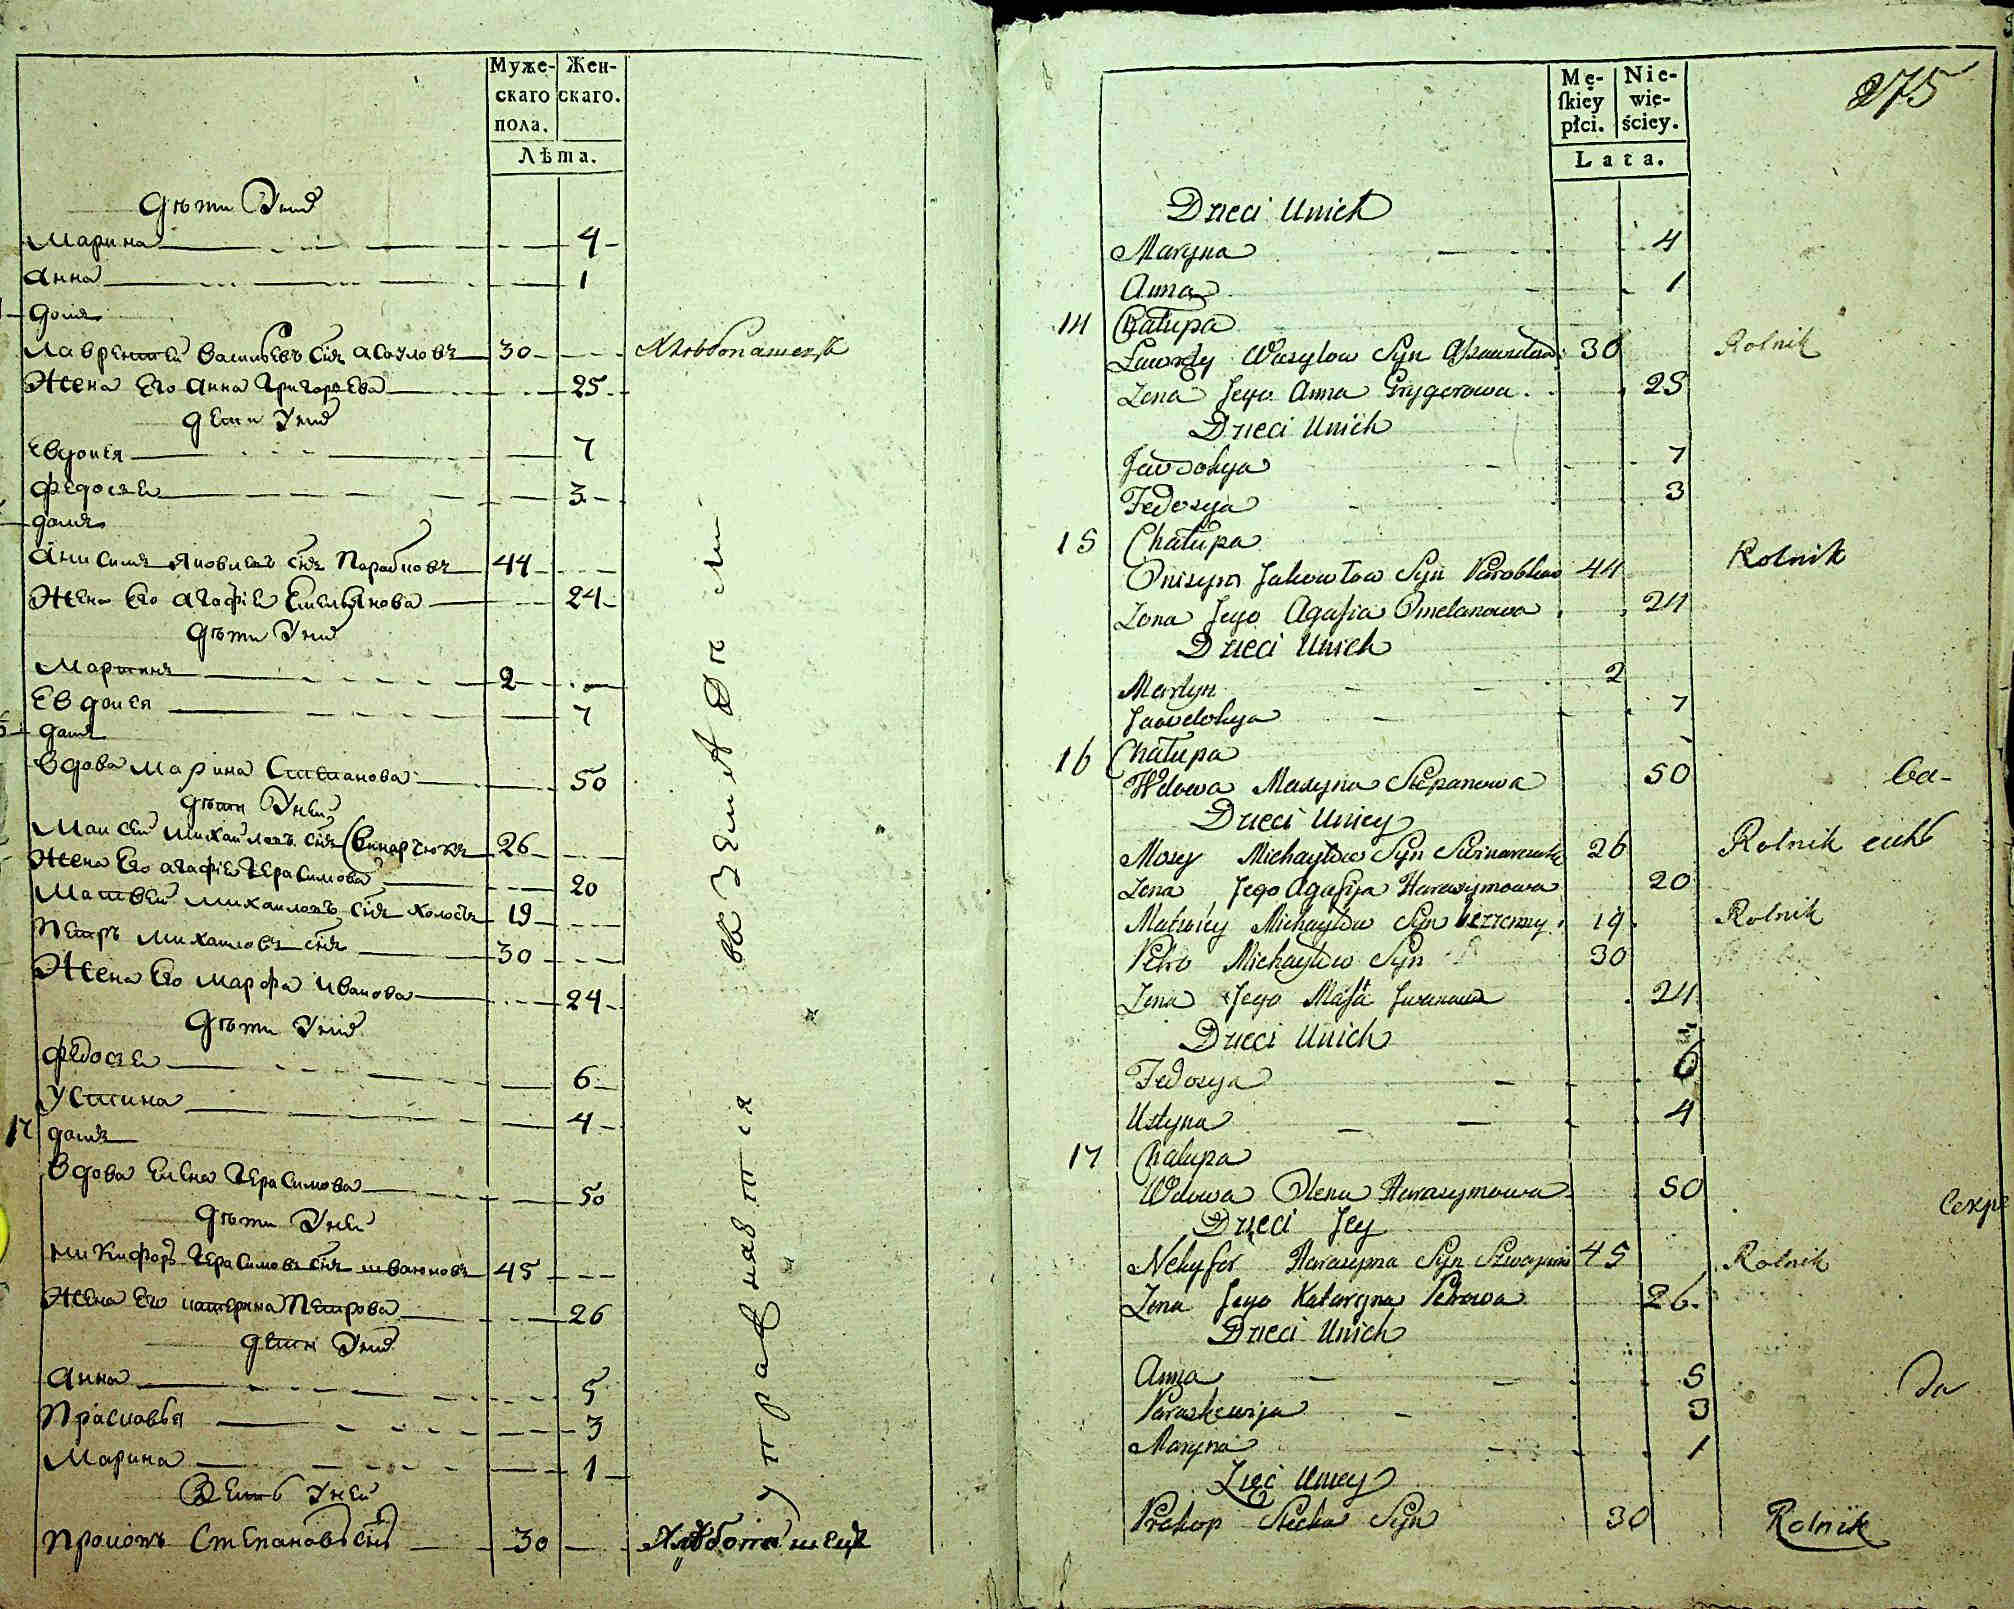 Муже-
скаго
пола.
Жен-
скаго.
Лѣта.
Дѣти У них
Марина 4
Анна 1
Домъ
Лаврентей Васильевъ Сынъ Асауловъ 30 Хлебопашецъ
Жена Его Анна Григорьева 25
Дети У них
Евдокия 7
Федосея 3
Домъ
Анисимъ Яковлевъ Сынъ Парабковъ 44
Жена Его Агафіея Емельянова 24
Дѣти У них
Мартинъ 2
Евдокея 7
Домъ
Вдова Марина Степанова 50
Дѣти У ней
Моисей Михайловъ Сынъ Винарчюкъ 26
Жена Его Агафіея Герасимова 20
Матвей Михайловъ Сынъ Холостъ 19
Петръ Михайловъ Сынъ 30
Жена Его Марфа Иванова 24
Дѣти У них
Федосея 6
Устина 4
17 Домъ
Вдова Елена Герасимова 50
Дѣти У ней
Никифоръ Герасимовъ Сынъ 45
Жена Его Катерина Петрова 26
Дети У них
Анна 5
Прасковья 3
Марина 1
Зеть У ней
Прокопъ Степановъ Сынъ 30 Хлѣбопашецъ
275
Mę-
ſkiey
płci.
Nie-
wie-
ściey.
Lata.
Dzieci Unich
Maryna 4
Anna 1
14 Chałupa
Ławryn Wasylow Syn 30 Rolnik
Zona Jego Anna Grygorowa 25
Dzieci Unich
Jawdokya 7
Fedosya 3
15 Chałupa
Onisym Jakowłow Syn Parobkow 44 Rolnik
Zona Jego Agafia Omelanowa 24
Dzieci Unich
Martyn 2
Jawdokya 7
16 Chałupa
Wdowa Maryna Stepanowa 50
Dzieci Uniey
Mosey Michayłow Syn 26 Rolnik
Zona Jego Agafija Harasymowa 20
Matwiey Michayłow Syn bezzenny 19 Rolnik
Petro Michayłow Syn 30
Zona Jego Marfa Iwanowa 24
Dzieci Unich
Fedosya 6
Ustyna 4
17 Chałupa
Wdowa Olena Harasymowa 50
Dzieci Jey
Nekyfor Harasyma Syn 45 Rolnik
Zona Jego Kataryna Petrowa 26
Dzieci Unich
Anna 5
Paraskewija 3
Maryna 1
Zięć Uniey
Prokop Stecka Syn 30 Rolnik